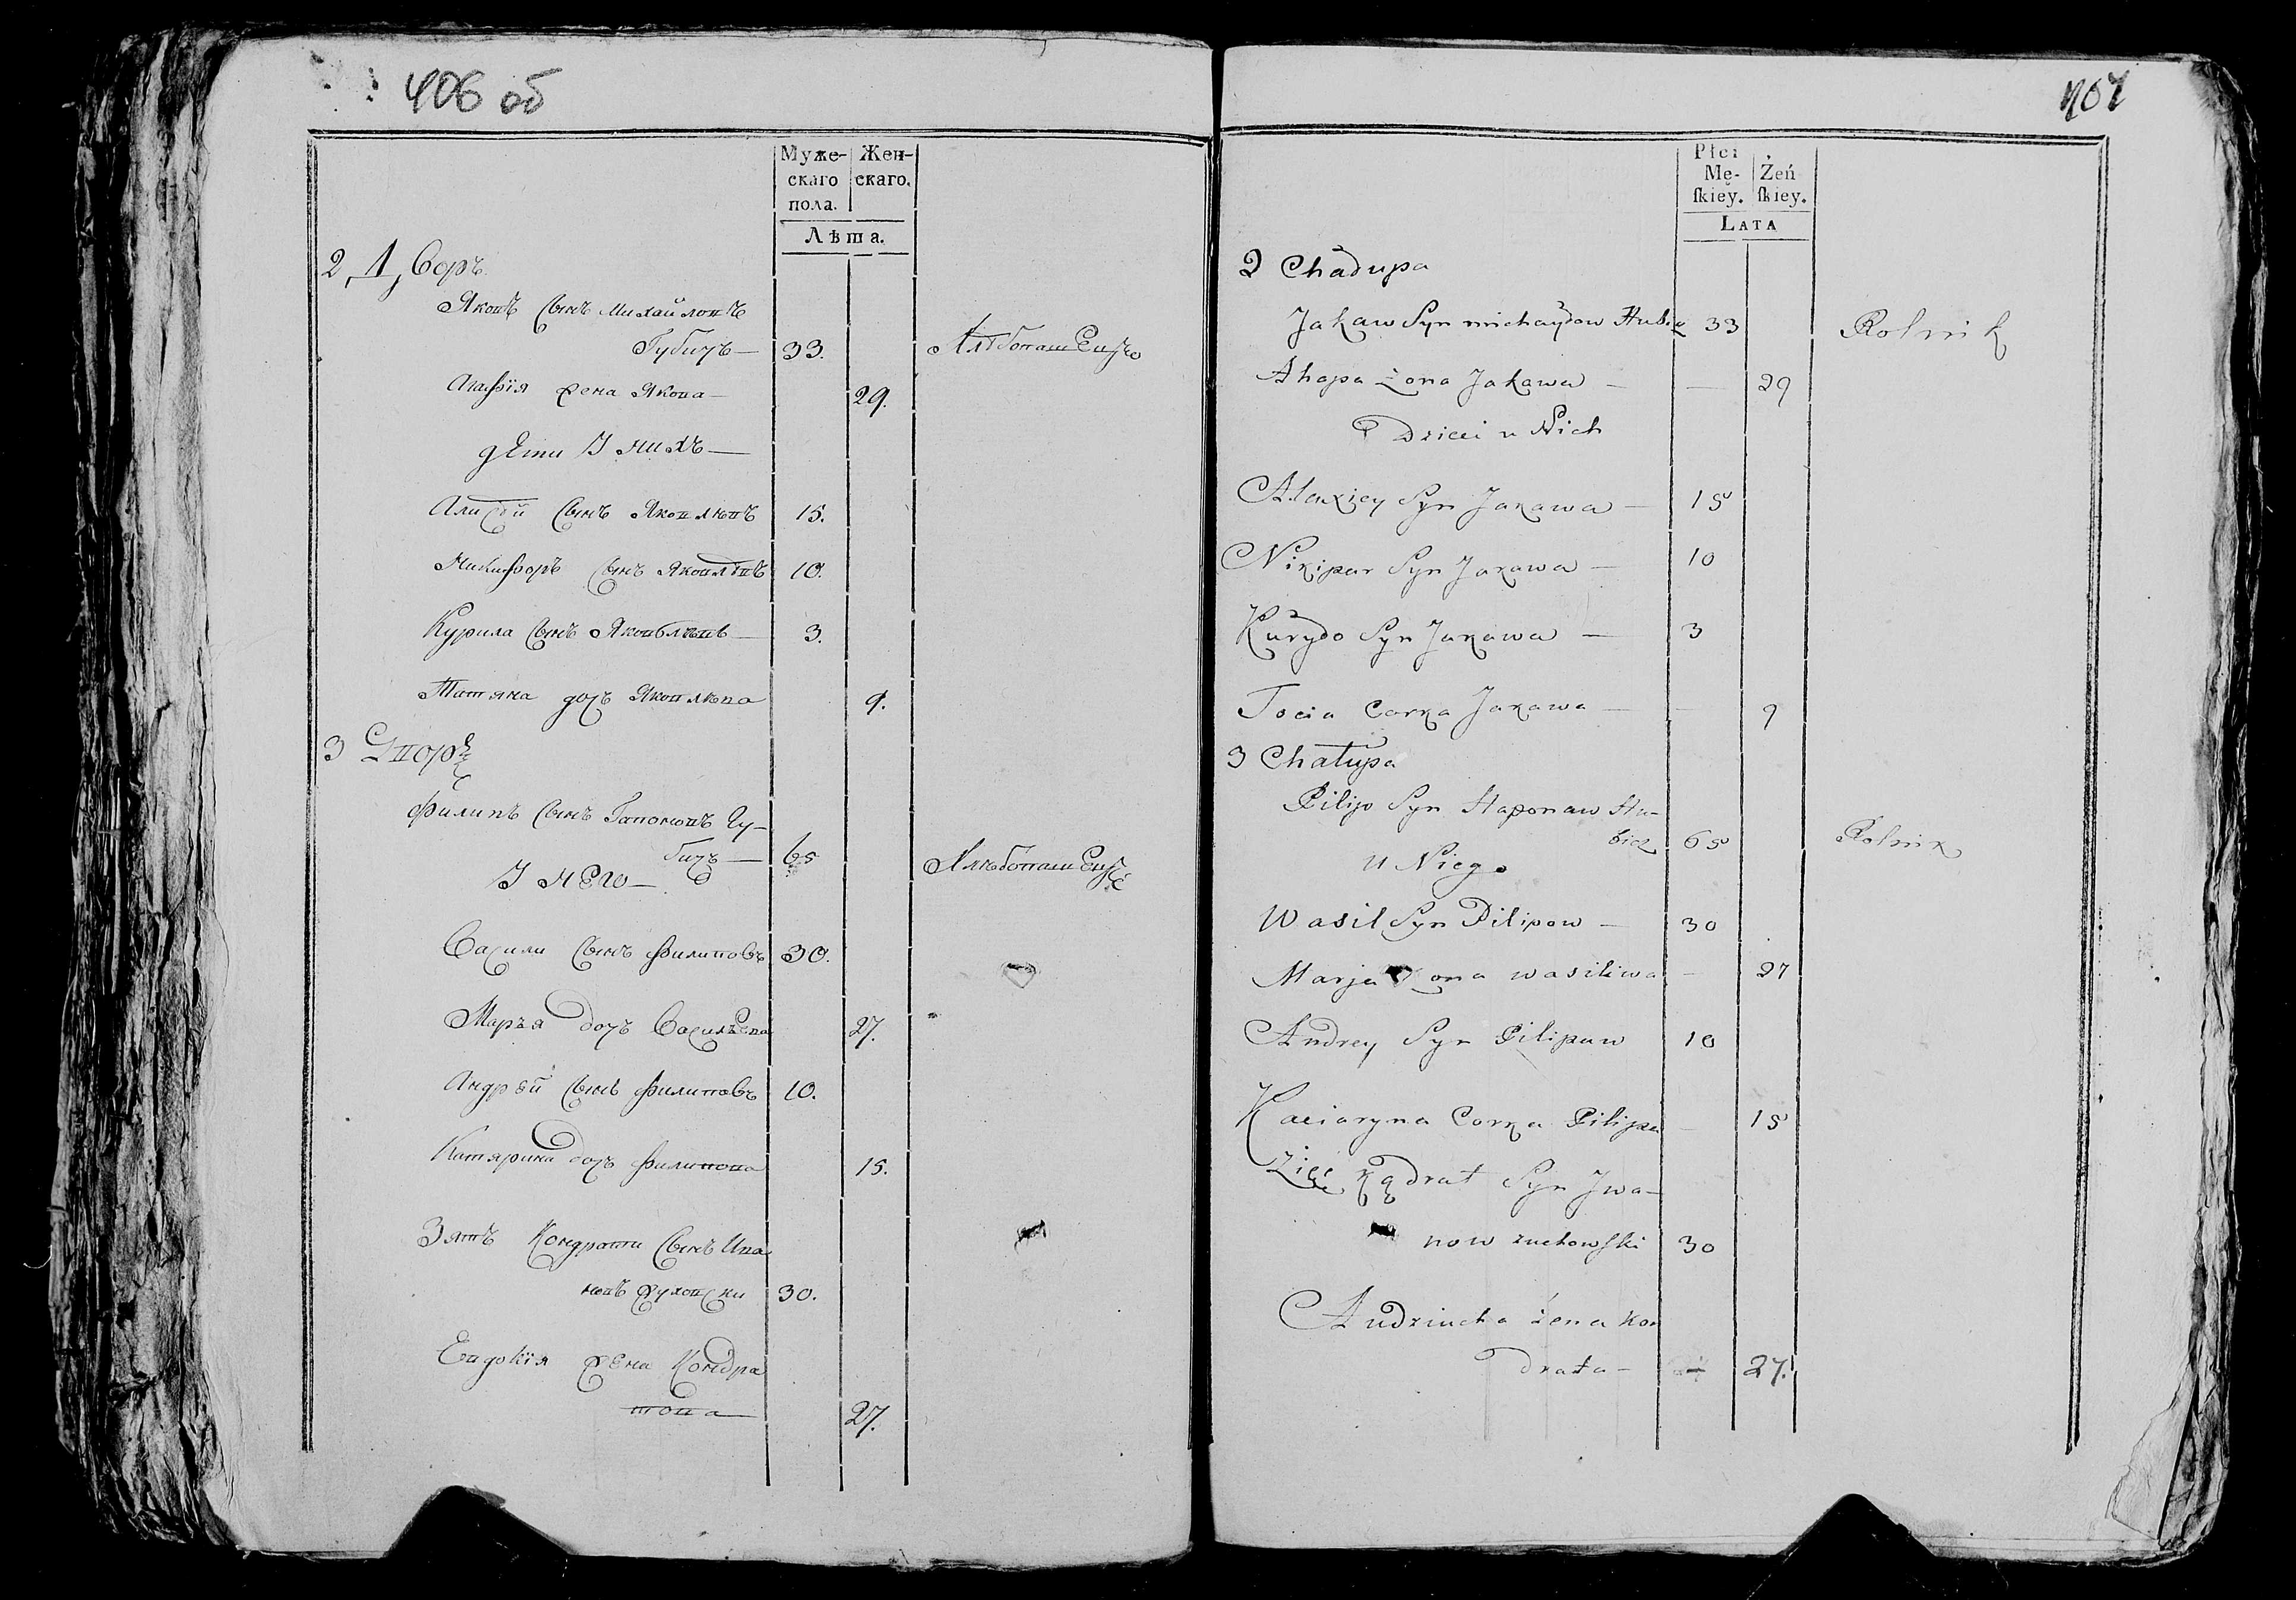 406 об
Муже-
скаго
пола.
Жен-
скаго.
Лѣта.
2 Дворъ
Яковъ сынъ Михайловъ
Губичъ — 33.
Агафія жена Якова — 29.
дети У нихъ —
сынъ Яковлевъ 15.
Никифоръ сынъ Яковлевъ 10.
Курила сынъ Яковлевъ — 3.
Татяна дочъ Яковлева 9.
3 Дворъ
Филипъ сынъ Гапоновъ Гу-
бичъ — 65
У него —
Васили сынъ Филиповъ 30.
Маръя дочъ Василева 27.
Андрей сынъ Филиповъ 10.
Катярина дочъ Филипова 15.
Зять Кондрати сынъ Ива
новъ Жуховски 30.
Евдокія жена Кондра
това 27.
407
Płci
Mę-
skiey.
Żeń
skiey.
LATA
2 Chałupa
Jakaw Syn michayłow Hubicz 33 Rolnik
Ahapa żona Jakawa — — 29
Dzieci u Nich
Alexiey Syn Jakawa — 15
Nikipar Syn Jakawa — 10
Kuryło Syn Jakawa — 3
Tocia Corka Jakawa — — 9
3 Chałupa
Pilip Syn Haponaw Hu-
bicz 65 Rolnik
U Niego
Wasil Syn Pilipow — 30
Marja żona wasiliwa — 27
Andrey Syn Pilipaw 10
Kaciaryna Corka Pilipa — 15
Zięć Kądrat Syn Jwa-
now żuchowski 30
Audziucha żena Kon
drata — — 27.